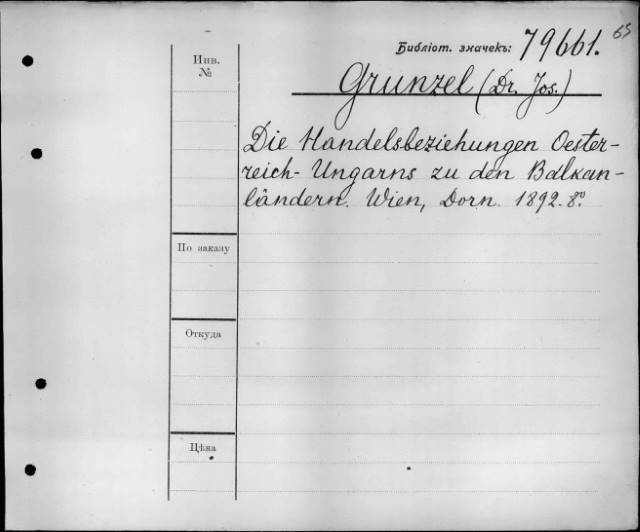 65
Библіот. значекъ: 79661.
Инв.
№
Grunzel (Dr. Jos.)
Die Handelsbeziehungen Oester-
reich-Ungarns zu den Balkan-
ländern. Wien, Dorn. 1892. 8º.
По заказу
Откуда
Цѣна